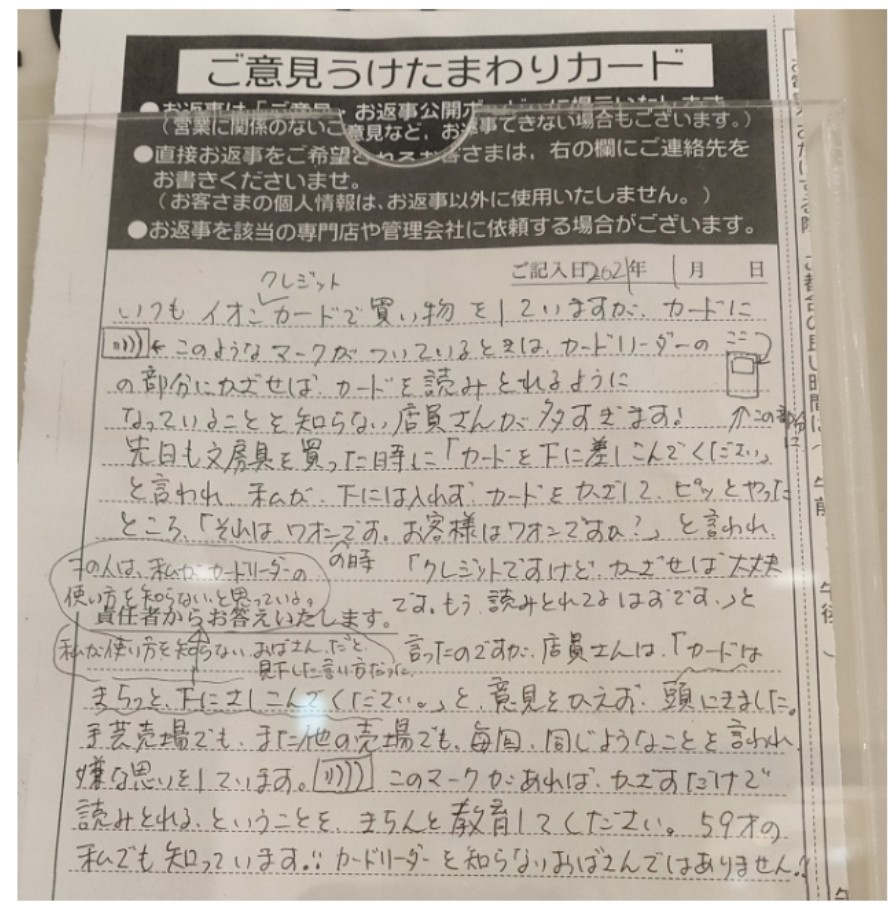 ご意見うけたまわりカード
●お返事は「ご意見・お返事公開ボード」に掲示いたします
（営業に関係のないご意見など、お返事できない場合もございます。）
●直接お返事をご希望されるお客さまは、右の欄にご連絡先を
お書きくださいませ。
（お客さまの個人情報は、お返事以外に使用いたしません。）
●お返事を該当の専門店や管理会社に依頼する場合がございます。
ご記入日2021年 1月 日
クレジット
いつも イオンカードで買い物をしていますが、カードに
←このようなマークがついているときは、カードリーダーの
ここ
の部分にかざせば、カードを読みとれるように
なっていることを知らない店員さんが多すぎます!
↑この部分に
先日も文房具を買った時に「カードを下に差しこんでください」
と言われ、私が、下には入れず、カードをかざして、ピッとやった
ところ、「それはワオンです。お客様はワオンですか?」と言われ、
その人は、私がカードリーダーの
使い方を知らない、と思っている。
の時
「クレジットですけど、かざせば大丈夫
です。もう読みとれてるはずです。」と
責任者からお答えいたします。
私が使い方を知らないおばさんだと、
見下した言い方だった
言ったのですが、店員さんは、「カードは
きちっと、下にさしこんでください。」と、意見をかえず、頭にきました。
手芸売場でも、また他の売場でも、毎回、同じようなことを言われ、
嫌な思いをしています。このマークがあれば、かざすだけで
読みとれる、ということを、きちんと教育してください。59才の
私でも知っています!! カードリーダーを知らないおばさんではありません!!